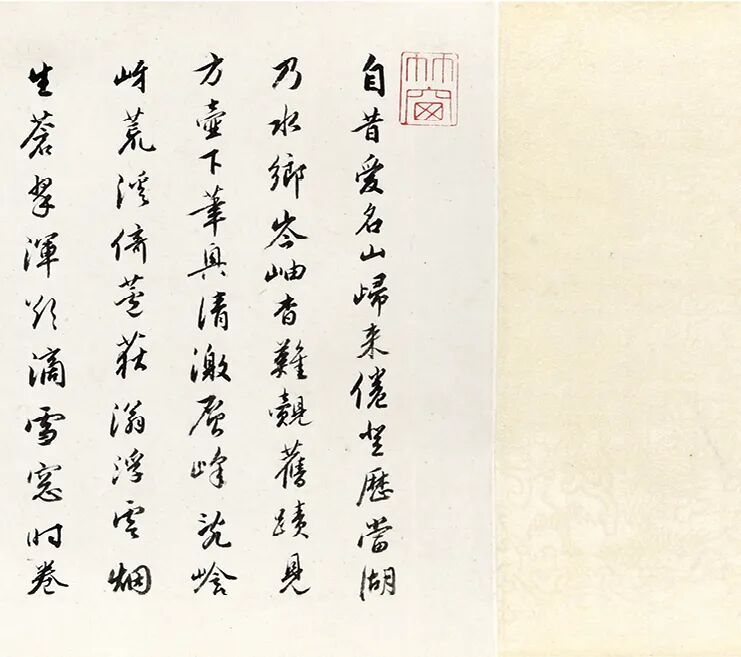 竹窗
自昔愛名山歸来倦登歷當湖
乃水鄉岑岫杳難覿舊蹟見
方壺下筆具清激層峰峆
岈荒溪倚蘆荻滃浮雲烟
生蒼翠渾欲滴雪窓时卷